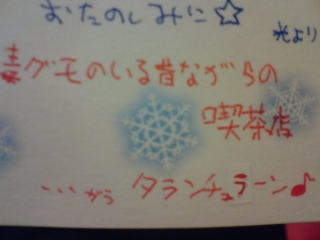 おたのしみに☆
光より
素グモのいる昔ながらの
喫茶店
・・・がう タランチュラーン♪